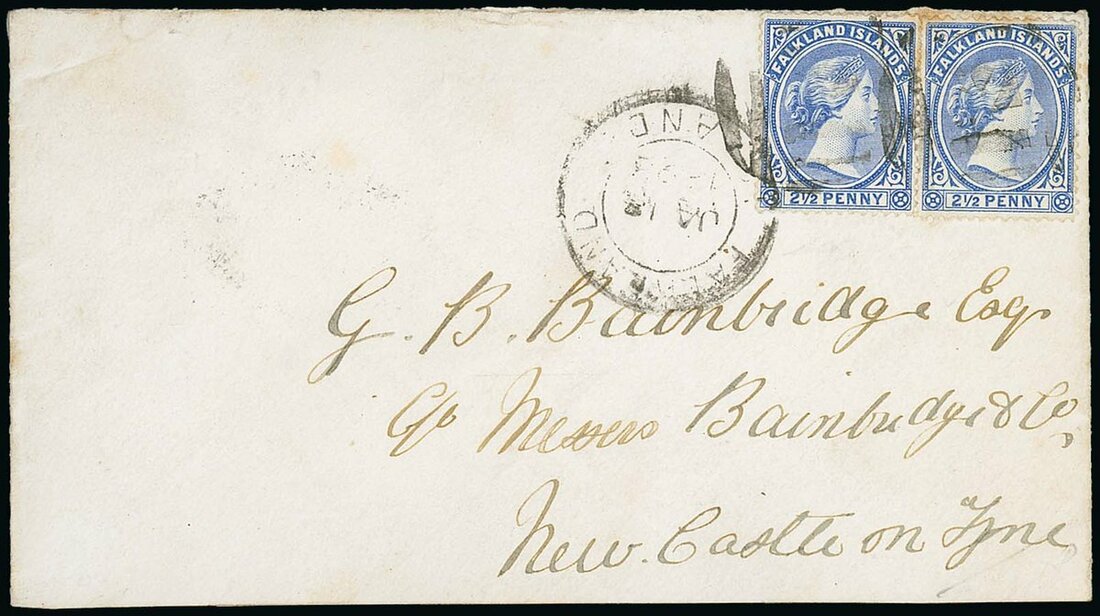 FALKLAND ISLANDS
2½ PENNY
FALKLAND ISLANDS
2½ PENNY
JA 
G. B. Bainbridge Esq
c/o Messers Bainbridge & Co,
New. Castle on Tyne